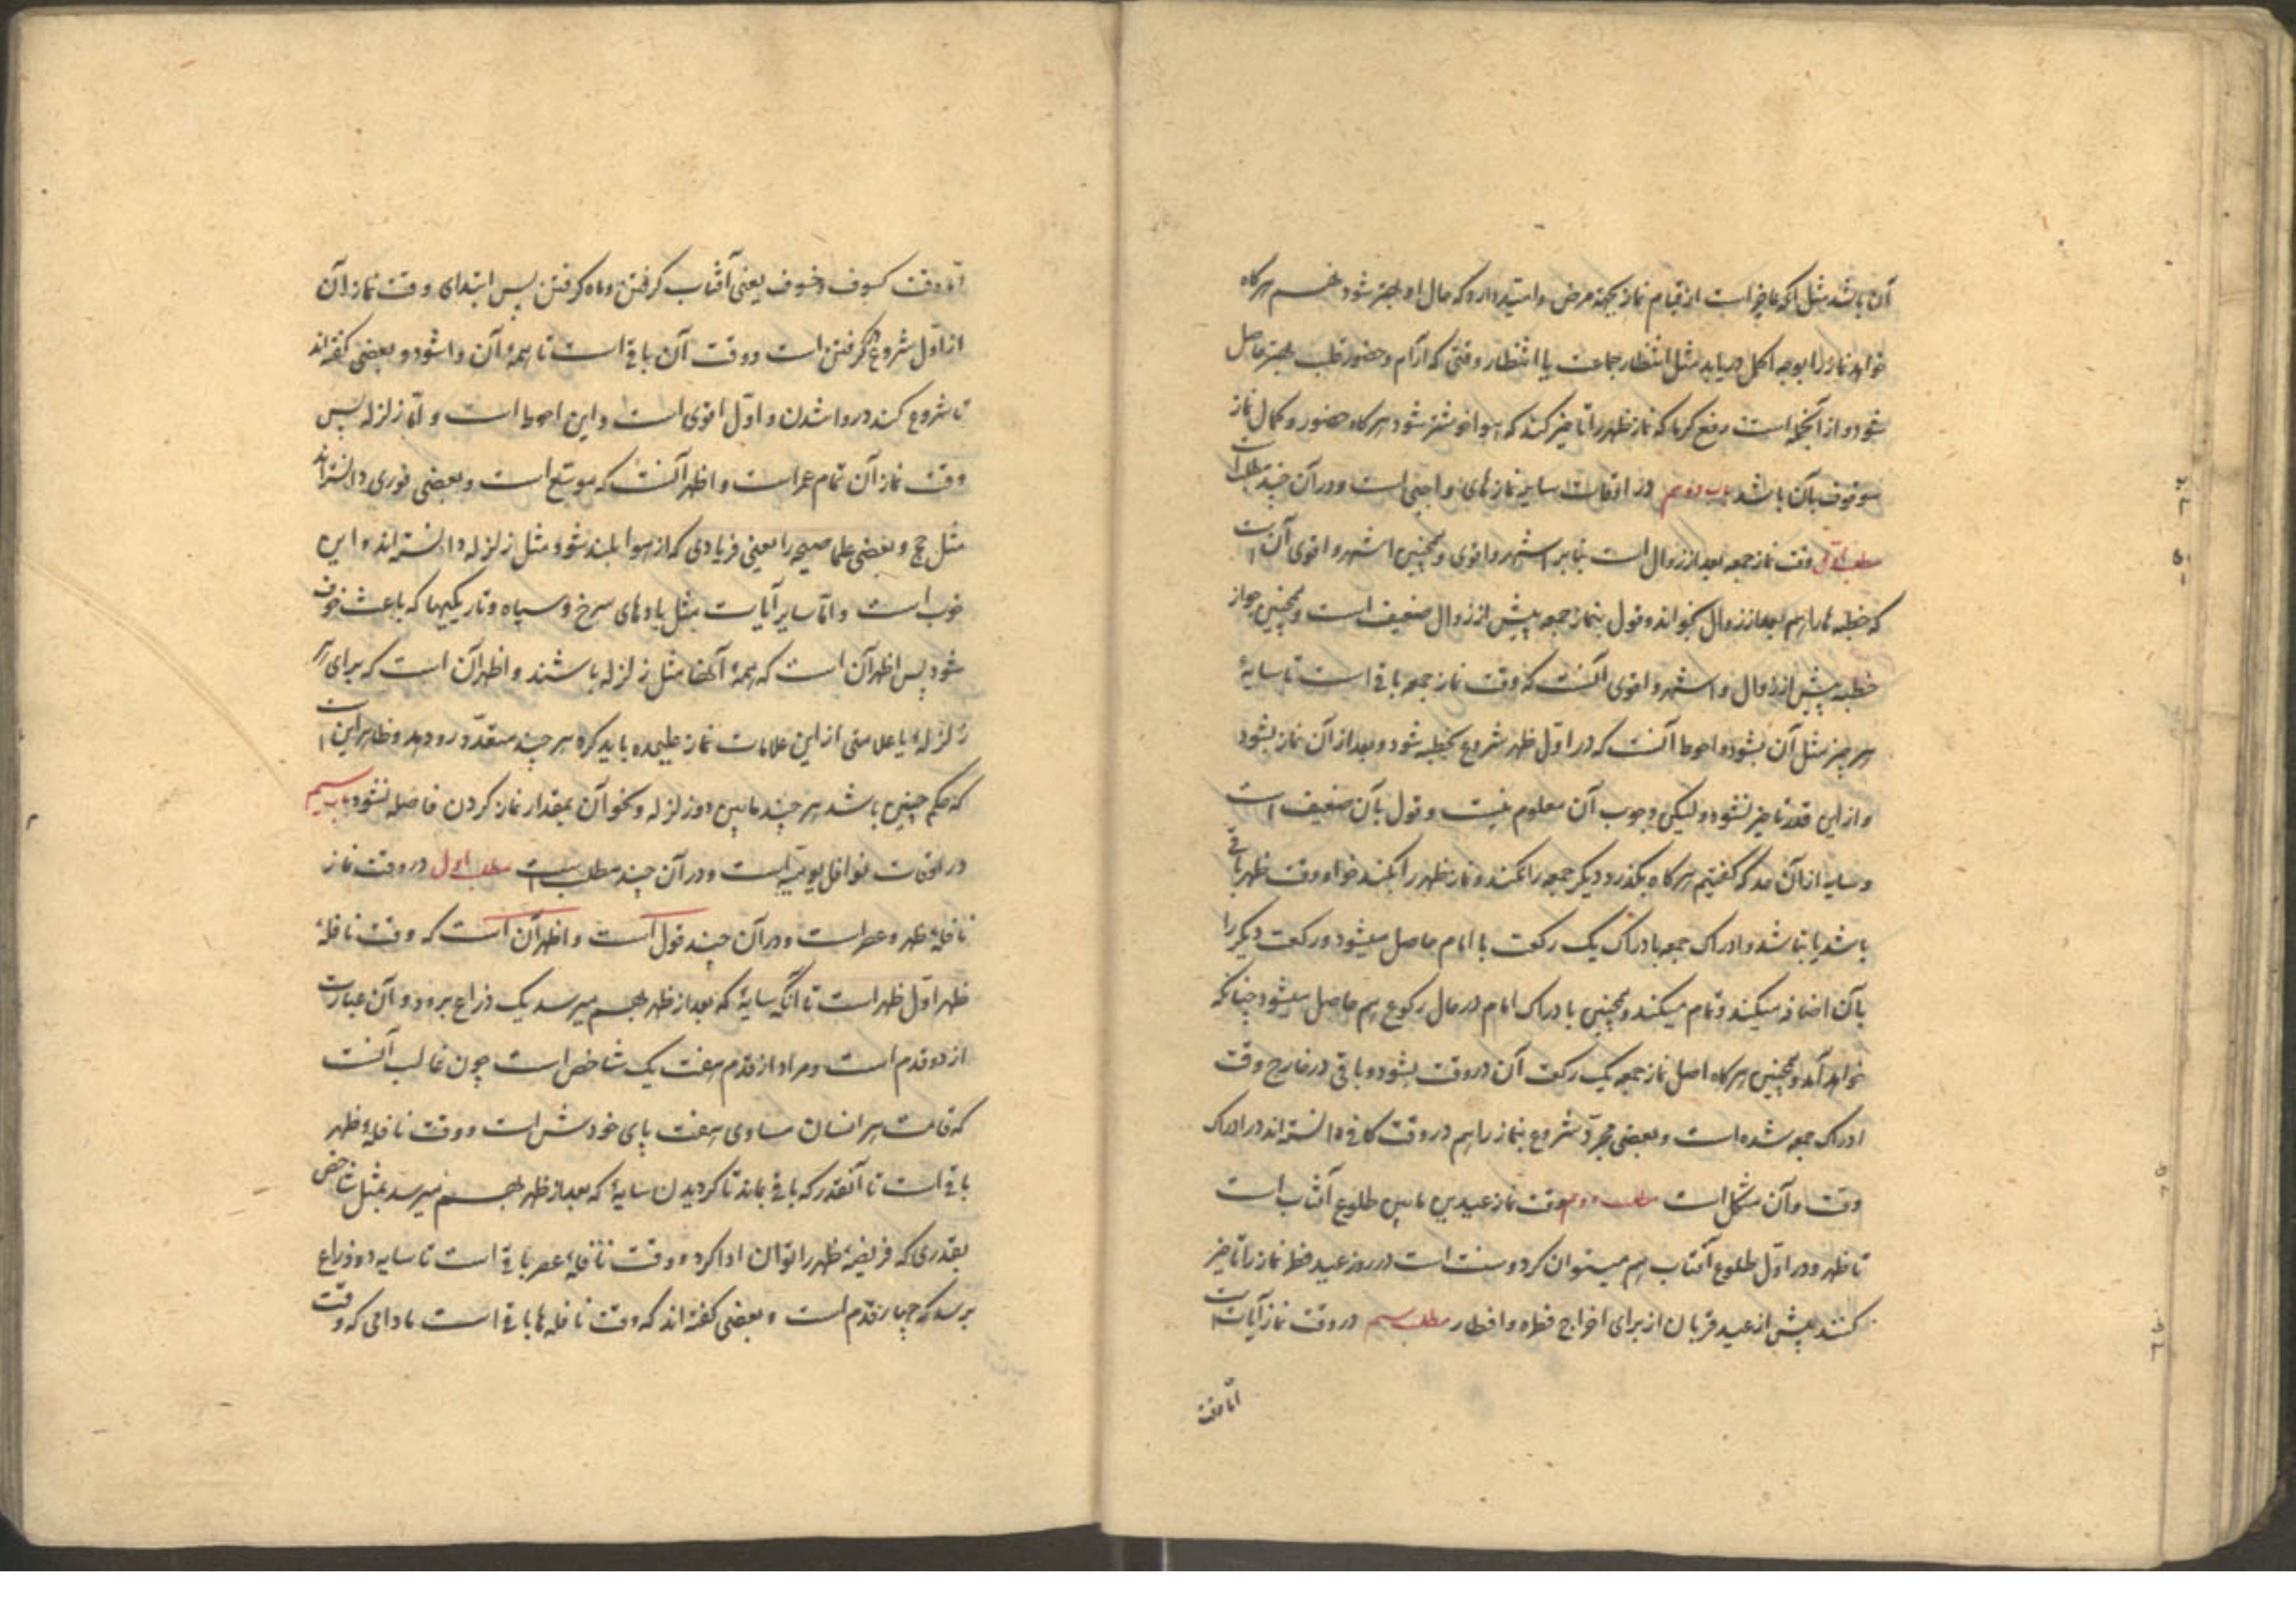 آن باشد مثل آنکه عاجز است از قیام نماز بجهة مرض و امید دارد که حال او بهتر شود هرگاه
خواهد نماز را بوجه اکمل دریابد مثل انتظار جماعت یا انتظار وقتی که آرام و حضور قلب بهتر حاصل
شود و از آنجمله است رفع گرما که نماز ظهر را تاخیر کند که هوا خوشتر شود هرگاه حضور و کمال نماز
موقوف بآن باشد باب دوم در اوقات سایر نمازهای واجبی است و در آن چند مطلب است
مطلب اول وقت نماز جمعه بعد از زوال است بنابر اشهر و اقوی و همچنین اشهر و اقوی آن است
که خطبه ها را هم بعد از زوال بخواند و قول بنماز جمعه پیش از زوال ضعیف است و همچنین جواز
خطبه پیش از زوال و اشهر و اقوی آنست که وقت نماز جمعه باقی است تا سایهٔ
هر چیز مثل آن بشود و احوط آنست که در اول ظهر شروع بخطبه شود و بعد از آن نماز بشود
و از این قدر تاخیر نشود ولیکن وجوب آن معلوم نیست و قول بآن ضعیف است
و سایه از آن حد که گفتیم هرگاه بگذرد دیگر جمعه را نکند و نماز ظهر را بکند خواه وقت ظهر باقی
باشد یا نباشد و ادراک جمعه بادراک یک رکعت با امام حاصل میشود و رکعت دیگر را
بآن اضافه میکند و تمام میکند و همچنین بادراک امام در حال رکوع هم حاصل میشود چنانکه
خواهد آمد و همچنین هرگاه اصل نماز جمعه یک رکعت آن در وقت بشود و باقی در خارج وقت
ادراک جمعه شده است و بعضی مجرد شروع بنماز را هم در وقت کافی دانسته اند در ادراک
وقت و آن مشکل است مطلب دوم وقت نماز عیدین مابین طلوع آفتاب است
تا ظهر و در اول طلوع آفتاب هم میتوان کرد و سنت است در روز عید فطر نماز را تاخیر
کنند بیش از عید قربان از برای اخراج فطره و افطار مطلب سیم در وقت نماز آیات است
اما وقت
اما وقت کسوف و خسوف یعنی آفتاب گرفتن و ماه گرفتن پس ابتدای وقت نماز آن
از اول شروع گرفتن است و وقت آن باقی است تا همهٔ آن وا شود و بعضی گفته اند
تا شروع کند در وا شدن و اول اقوی است و این احوط است و اما زلزله پس
وقت نماز آن تمام عمر است و اظهر آنست که موسع است و بعضی فوری دانسته اند
مثل حج و بعضی علما صیحه را یعنی فریادی که از هوا بلند شود مثل زلزله دانسته اند و این
خوب است و اما سایر آیات مثل بادهای سرخ و سیاه و تاریکیها که باعث خوف
شود پس اظهر آن است که همهٔ آنها مثل زلزله باشند و اظهر آن است که برای هر
زلزله یا علامتی از این علامات نماز علیحده باید کرد هر چند متعدد رو دهد و ظاهر این است
که حکم چنین باشد هر چند مابین دو زلزله و نحو آن بمقدار نماز کردن فاصله نشود باب سیم
در اوقات نوافل یومیه است و در آن چند مطلب است مطلب اول در وقت نماز
نافلهٔ ظهر و عصر است و در آن چند قول است و اظهر آن است که وقت نافلهٔ
ظهر اول ظهر است تا آنکه سایهٔ که بعد از ظهر بهم میرسد یک ذراع برود و آن عبارت
از دو قدم است و مراد از قدم هفت یک شاخص است چون غالب آنست
که قامت هر انسان مساوی هفت پای خودش است و وقت نافلهٔ ظهر
باقی است تا آنقدر که باقی بماند تا گردیدن سایهٔ که بعد از ظهر بهم میرسد بمثل شاخص
بقدری که فریضهٔ ظهر را توان ادا کرد و وقت نافلهٔ عصر باقی است تا سایه دو ذراع
برسد که چهار قدم است و بعضی گفته اند که وقت نافله ها باقی است مادامی که وقت